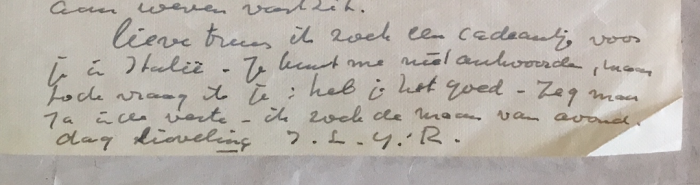 aan weven vastzit.
lieve truus ik zoek een cadeautje voor
je in Italië - Je kunt me niet antwoorden, maar
toch vraag ik je : heb je het goed - Zeg maar
Ja in de verte - ik zoek de maan van avond.
dag lieveling J. L. Y. R.